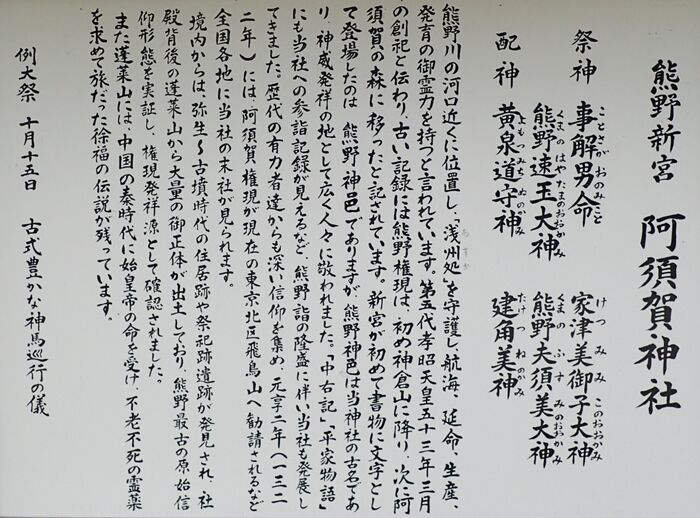 熊野新宮 阿須賀神社
祭神 事解男命 家津美御子大神
熊野速玉大神 熊野夫須美大神
配神 黄泉道守神 建角美神
熊野川の河口近くに位置し、「浅州処」を守護し、航海、延命、生産、
発育の御霊力を持つと言われています。第五代孝昭天皇五十三年三月
の創祀と伝わり、古い記録には熊野権現は、初め神倉山に降り、次に阿
須賀の森に移ったと記されています。新宮が初めて書物に文字とし
て登場したのは 熊野神邑でありますが、熊野神邑は当神社の古名であ
り、神威発祥の地として広く人々に敬われました。「中右記」「平家物語」
にも当社への参詣記録が見えるなど、熊野詣の隆盛に伴い当社も発展し
てきました。歴代の有力者達からも深い信仰を集め、元享二年(一三二
二年)には、阿須賀権現が現在の東京北区飛鳥山へ勧請されるなど
全国各地に当社の末社が見られます。
境内からは、弥生~古墳時代の住居跡や祭祀跡遺跡が発見され、社
殿背後の蓬莱山から大量の御正体が出土しており、熊野最古の原始信
仰形態を実証し、権現発祥源として確認されました。
また蓬莱山には、中国の秦時代に始皇帝の命を受け、不老不死の霊薬
を求めて旅だった徐福の伝説が残っています。
例大祭 十月十五日 古式豊かな神馬巡行の儀